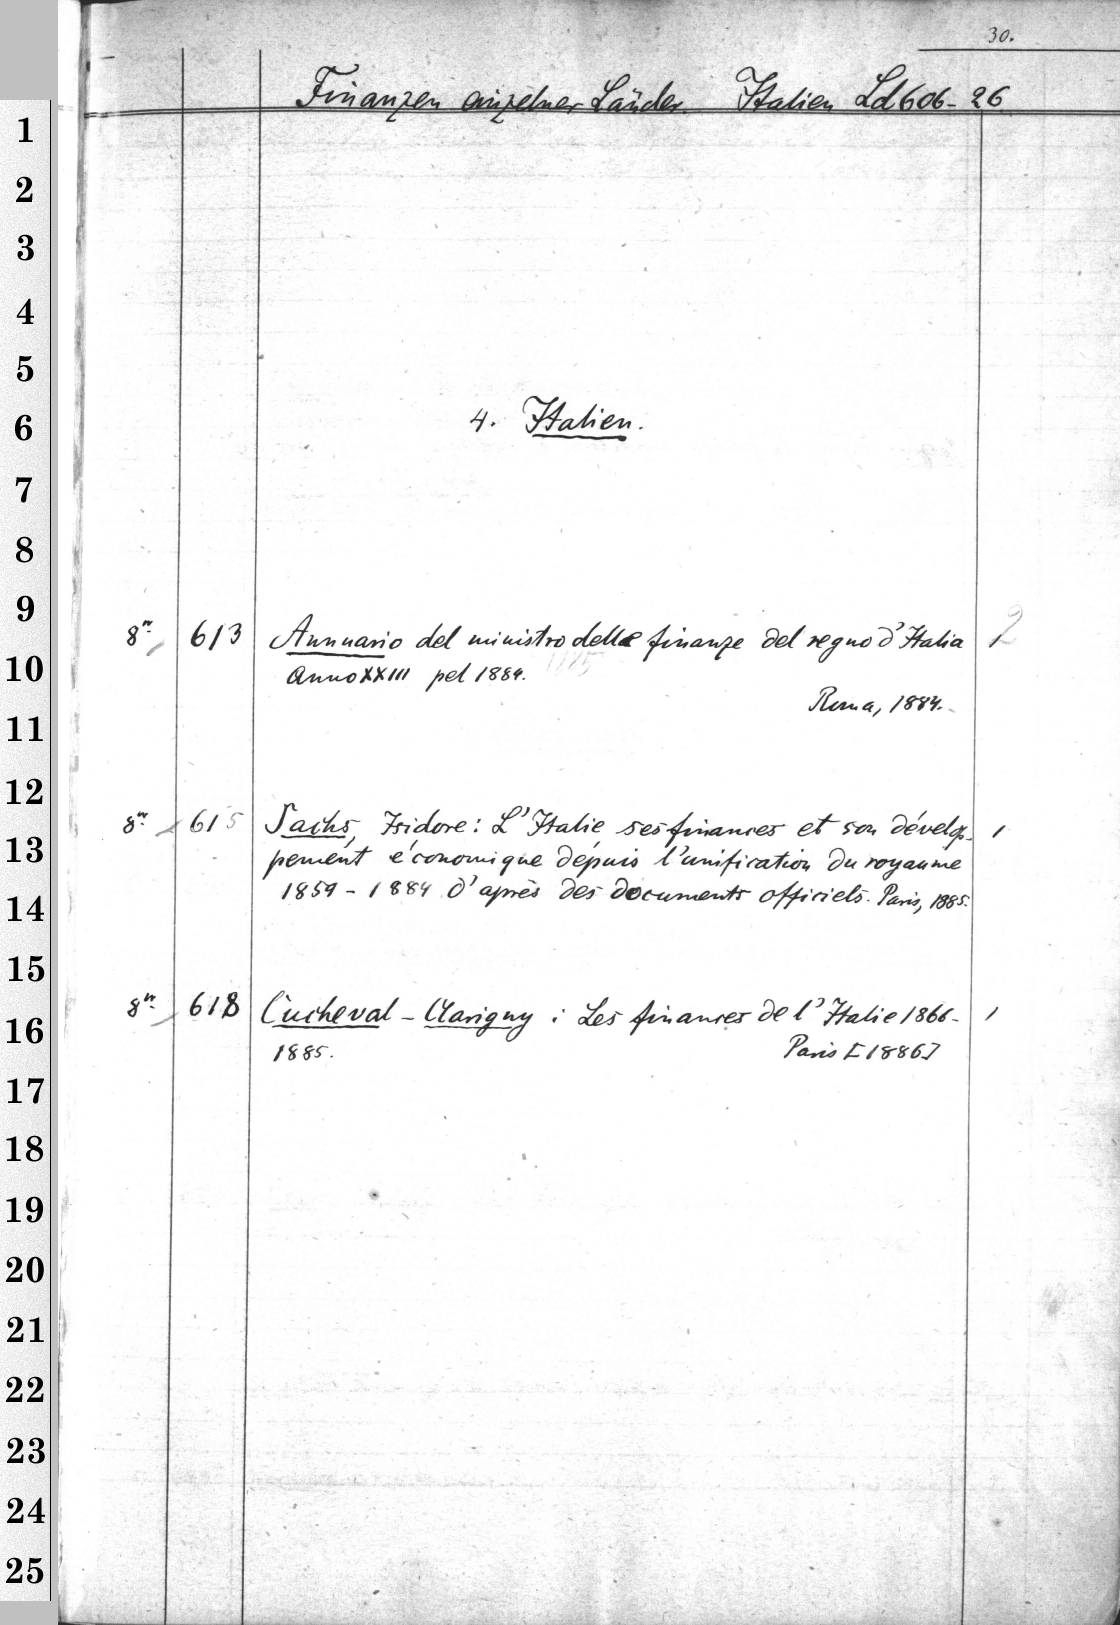 30.
Finanzen einzelner Länder. Italien Ld 606-26
1
2
3
4
5
6
4. Italien.
7
8
9
8º 613 Annuario del ministro delle finanze del regno d'Italia 1 2
10
Anno XXIII pel 1884.
Roma, 1884.
11
12
8º 615 Sachs, Isidore: L'Italie ses finances et son dévelop- 1
13
pement économique dépuis l'unification du royaume
1859-1884 d'après des documents officiels. Paris, 1885.
14
15
8º 618 Cucheval-Clarigny: Les finances de l'Italie 1866- 1
16
1885. Paris [1886]
17
18
19
20
21
22
23
24
25